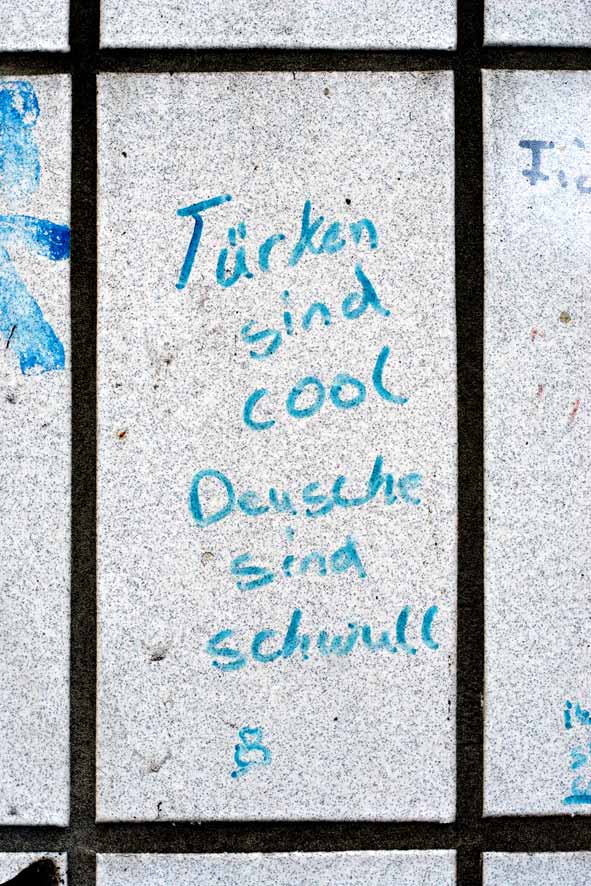 Türken
sind
cool
Deusche
sind
schwull